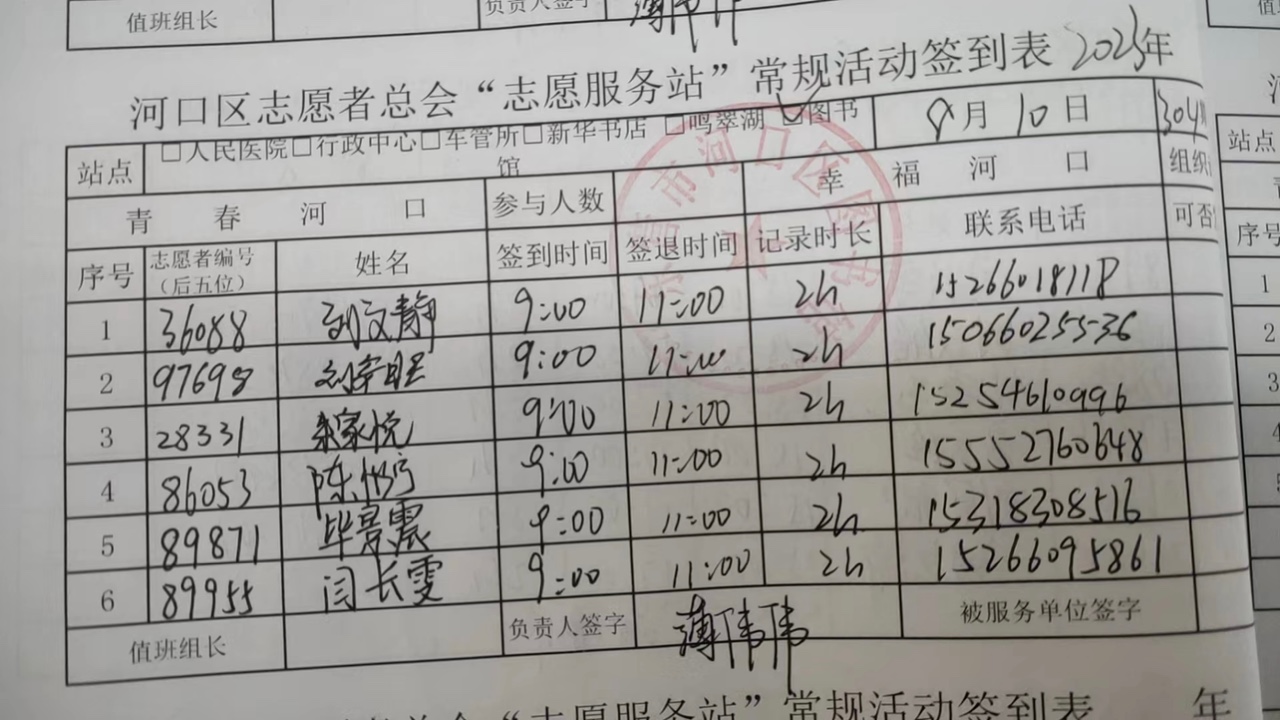 值班组长 负责人签字 薄伟伟
河口区志愿者总会“志愿服务站”常规活动签到表 2023年
站点 □人民医院□行政中心□车管所□新华书店 □鸣翠湖 ☑图书馆 8月10日
青春河口 参与人数 幸福河口 组织
序号 志愿者编号（后五位） 姓名 签到时间 签退时间 记录时长 联系电话 可否
1 36088 刘文静 9:00 11:00 2h 15266018118
2 97698 9:00 11:00 2h 15066025536
3 28331 家悦 9:00 11:00 2h 15254610996
4 86053 陈 9:00 11:00 2h 15552760648
5 89871 毕景震 9:00 11:00 2h 15318308516
6 89955 闫长雯 9:00 11:00 2h 15266095861
值班组长 负责人签字 薄伟伟 被服务单位签字
者总会“志愿服务站”常规活动签到表 年
站点
序号
1
2
3